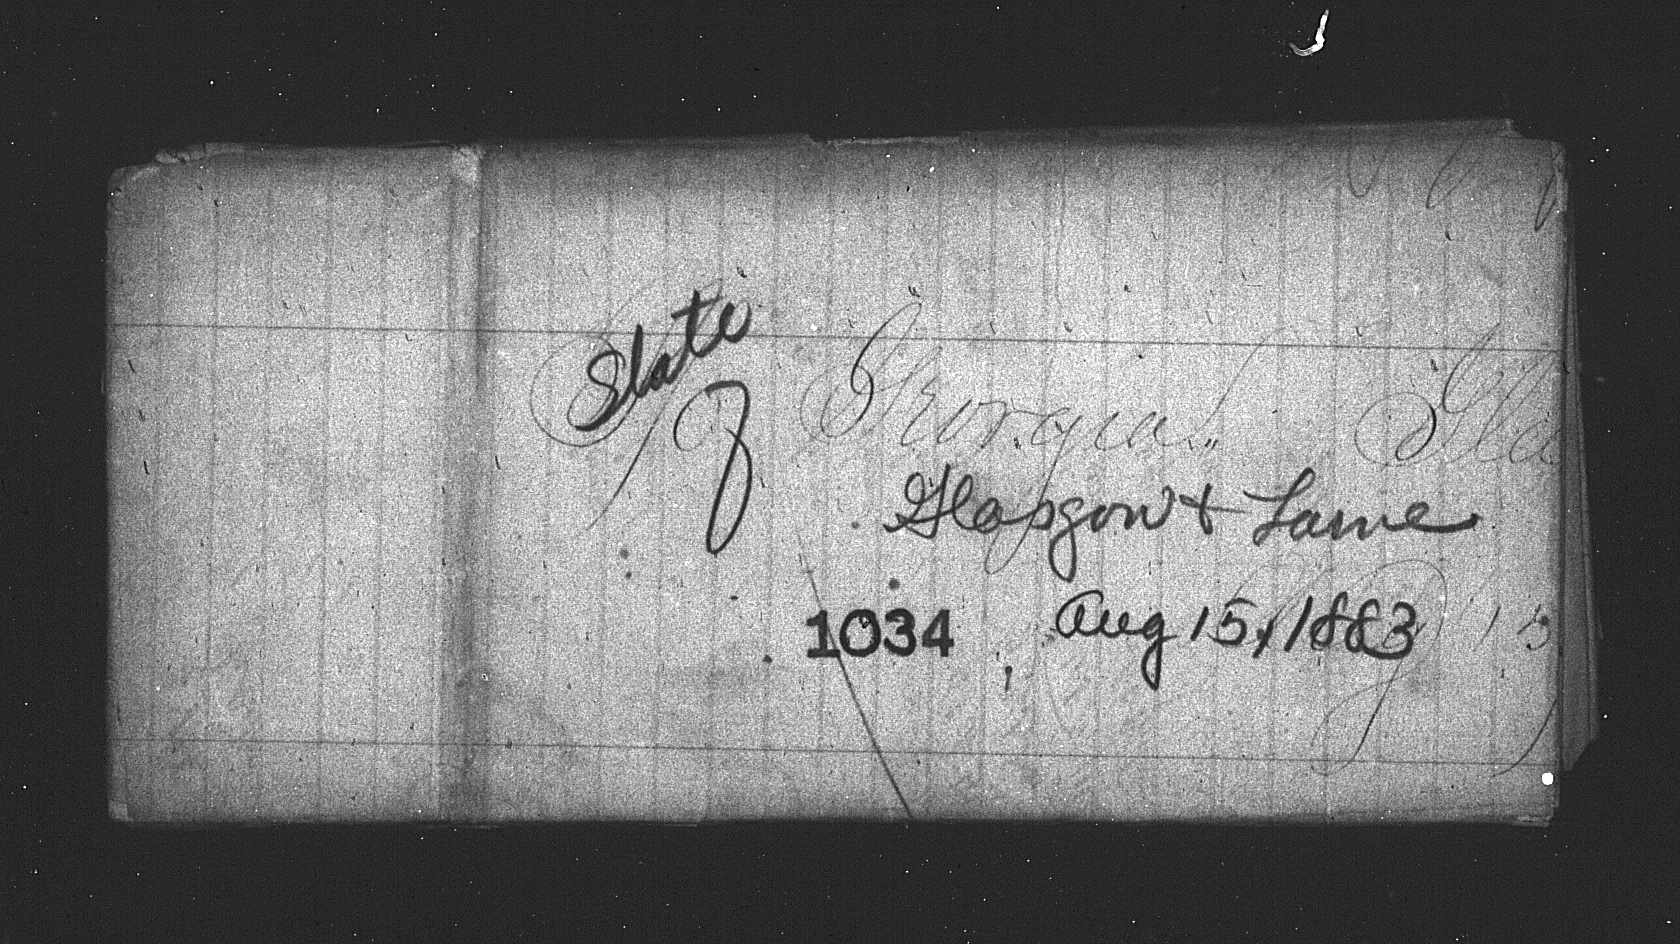 State
of Georgia. Gla
Glasgow + Lame
1034 Aug 15, 1883